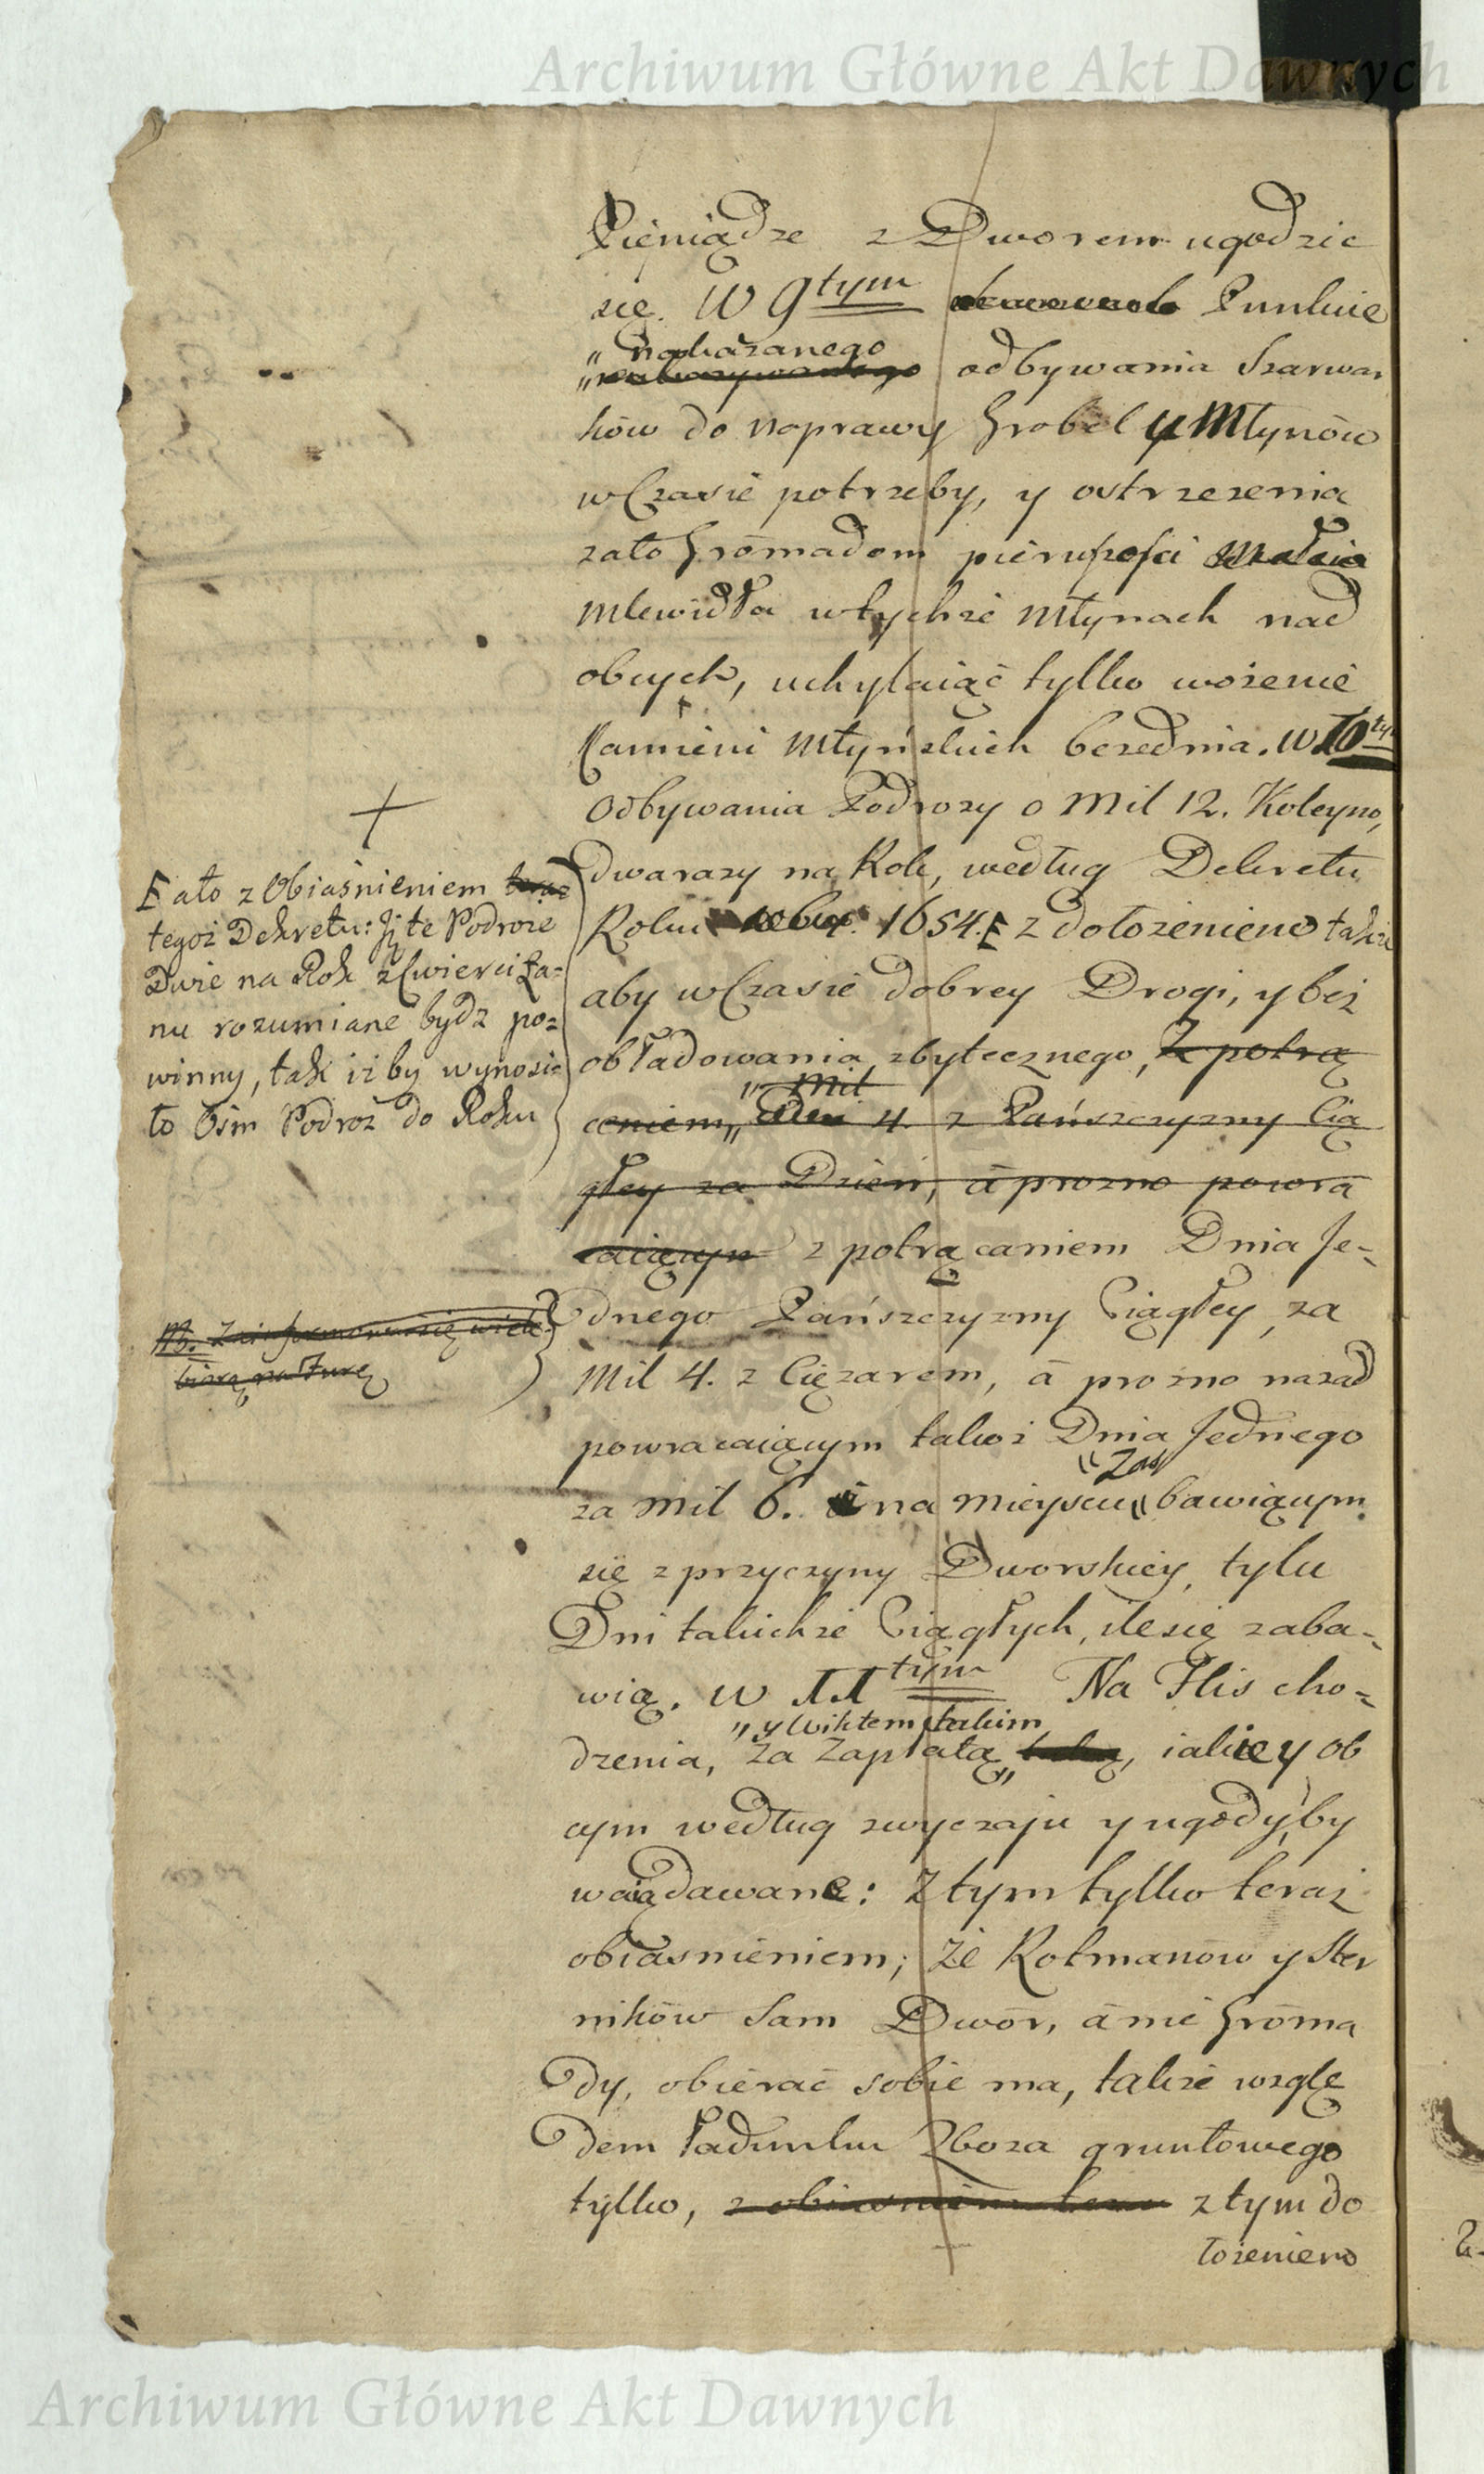 Archiwum Główne Akt Dawnych
Pieniądze z Dworem ugodzic
się. W 9tym Punkcie
„ nakazanego
odbywania Szarwar
ków do naprawy Grobel y Młynów
w Czasie potrzeby, y ostrzezenia
zato Grōmadom pierwszosci
mlewidła w tychże Młynach nad
obcych, uchylaiąc tylko wożenie
Kamieni Młyńskich bezednia. W 10ty
Odbywania Podrozy o Mil 12. Koleyno,
dwarazy na Rok, według Dekretu
Roku 1654. E z dołożeniem także
aby w Czasie dobrey Drogi, y bez
obładowania zbytecznego, Z potrą
„ Mil
ceniem „ 4. z Pańszczyzny Cią
głey za Dzień, á prozno powra
caiącym z potrącaniem Dnia Je-
dnego Pańszczyzny Ciągłey, za
Mil 4. z Cięzarem, á prozno nazad
powracaiącym takoż Dnia Jednego
„ Zaś
za Mil 6. na mieyscu „ bawiącym
się z przyczyny Dworskiey, tylu
Dni takichże Ciągłych, ile się zaba-
wią. W 11tym Na Flis cho-
„ y Wiktem takim
dzenia, za Zapłatą „ iakiey ob
cym według zwyczaju y ugody, by
waią dawane: Z tym tylko teraz
obiasnieniem; że Rotmanow y Ster
nikōw Sam Dwōr, á nie Grōma
dy, obierać sobie ma, także wzglę
dem Ładunku Zboza gruntowego
tylko, z tym do
łożeniem
+
E ato z Obiaśnieniem teraz
tegoż Dekretu: Jż te Podroże
Dwie na Rok z Cwierci Ła-
nu rozumiane bydz po-
winny, tak iżby wynosi-
ło Ośm Podroż do Roku
NB.
Archiwum Główne Akt Dawnych